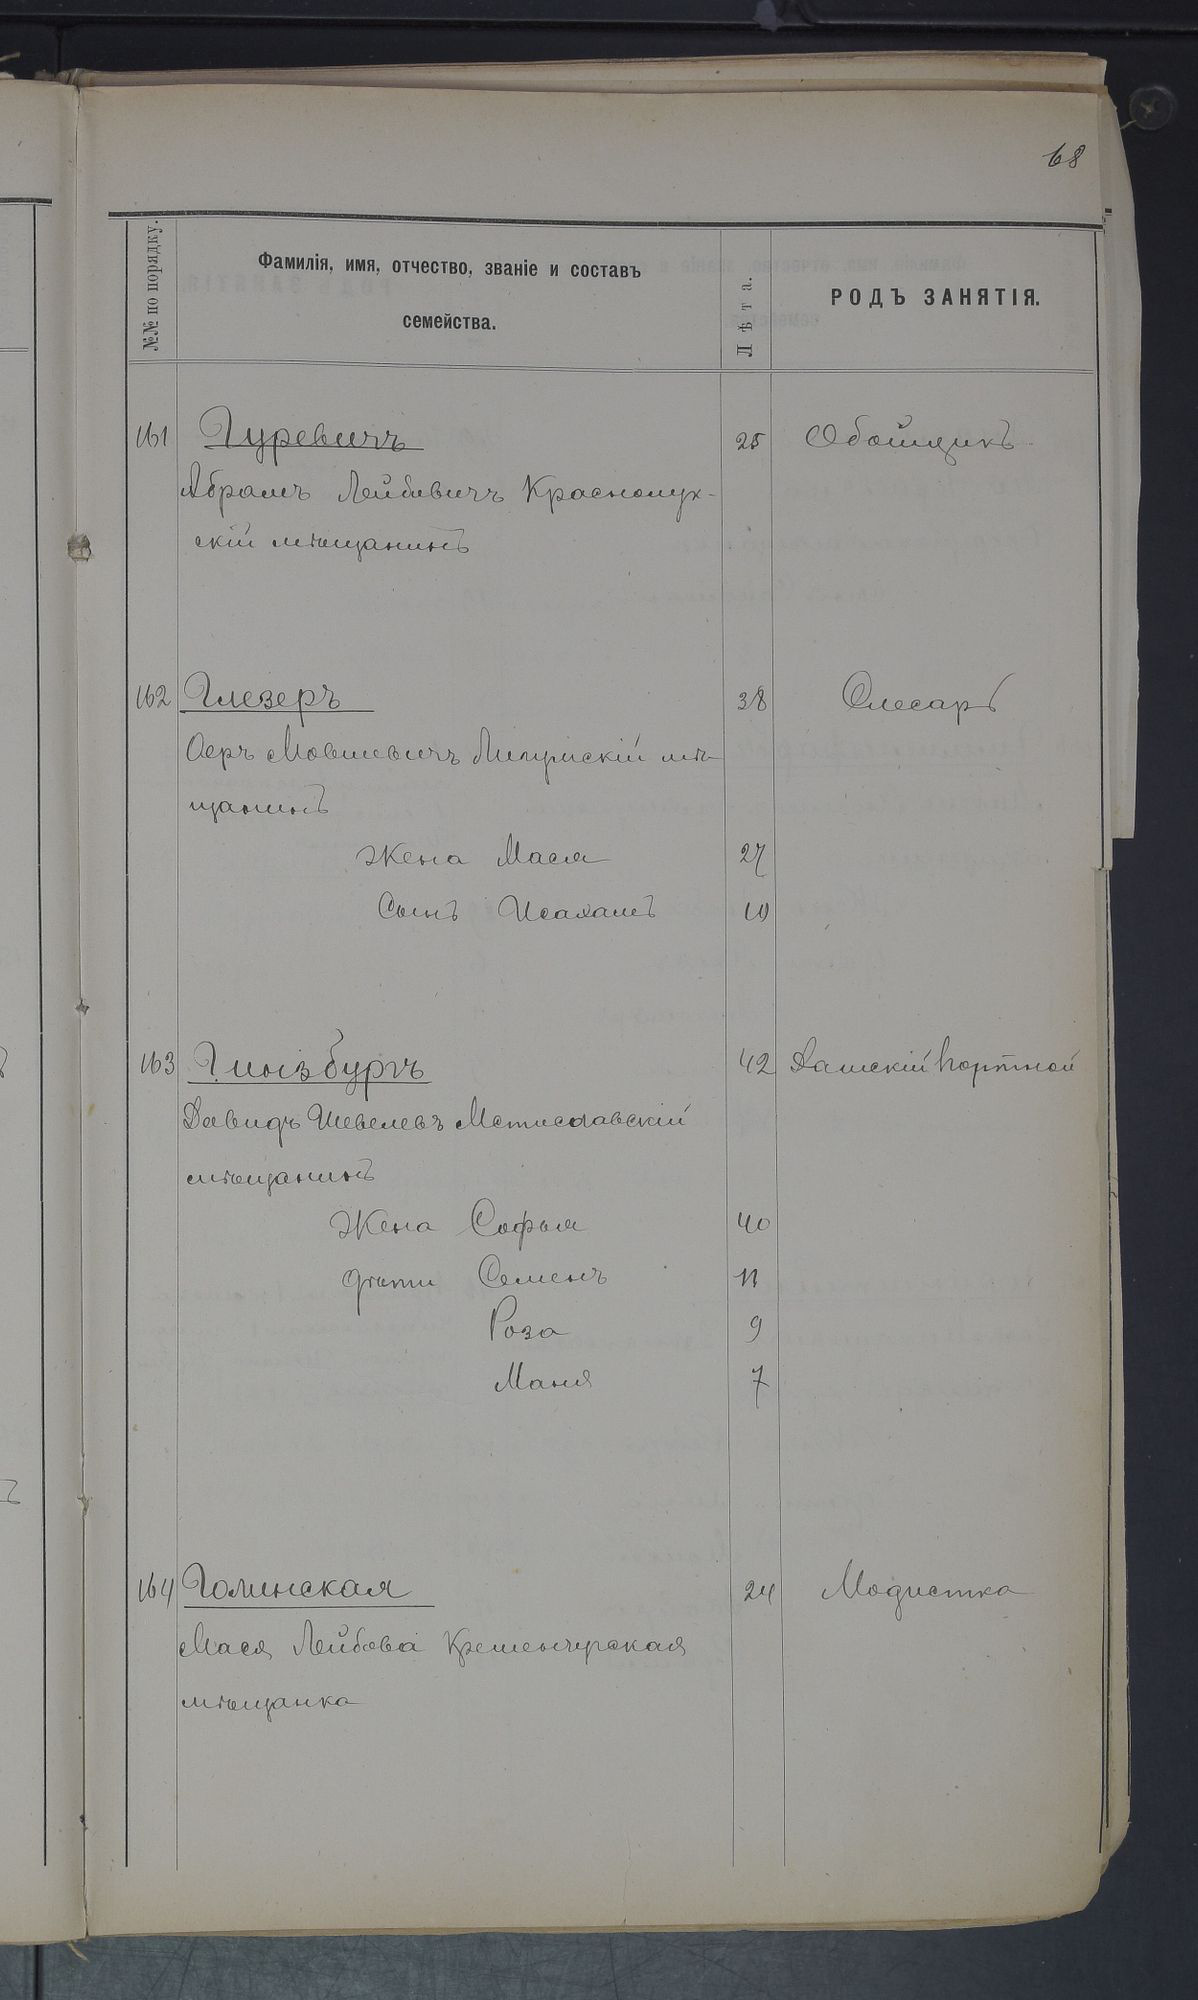 68
№№ по порядку.
Фамилія, имя, отчество, званіе и составъ
семейства.
Лѣта.
РОДЪ ЗАНЯТІЯ.
161 Гуревичъ 25 Обойщикъ
Абрамъ Лейбовичъ
скій мѣщанинъ
162 Глезеръ 38 Слесарь
Оеръ Мовшевичъ мѣ-
щанинъ
Жена Мася 27
Сынъ 10
163 Гинзбургъ 42 Дамскій портной
Давидъ Шевелевъ Мстиславскій
мѣщанинъ
Жена Софья 40
дѣти Семенъ 11
Роза 9
Маня 7
164 Голинская 24 Модистка
Мася Лейбова Кременчугская
мѣщанка